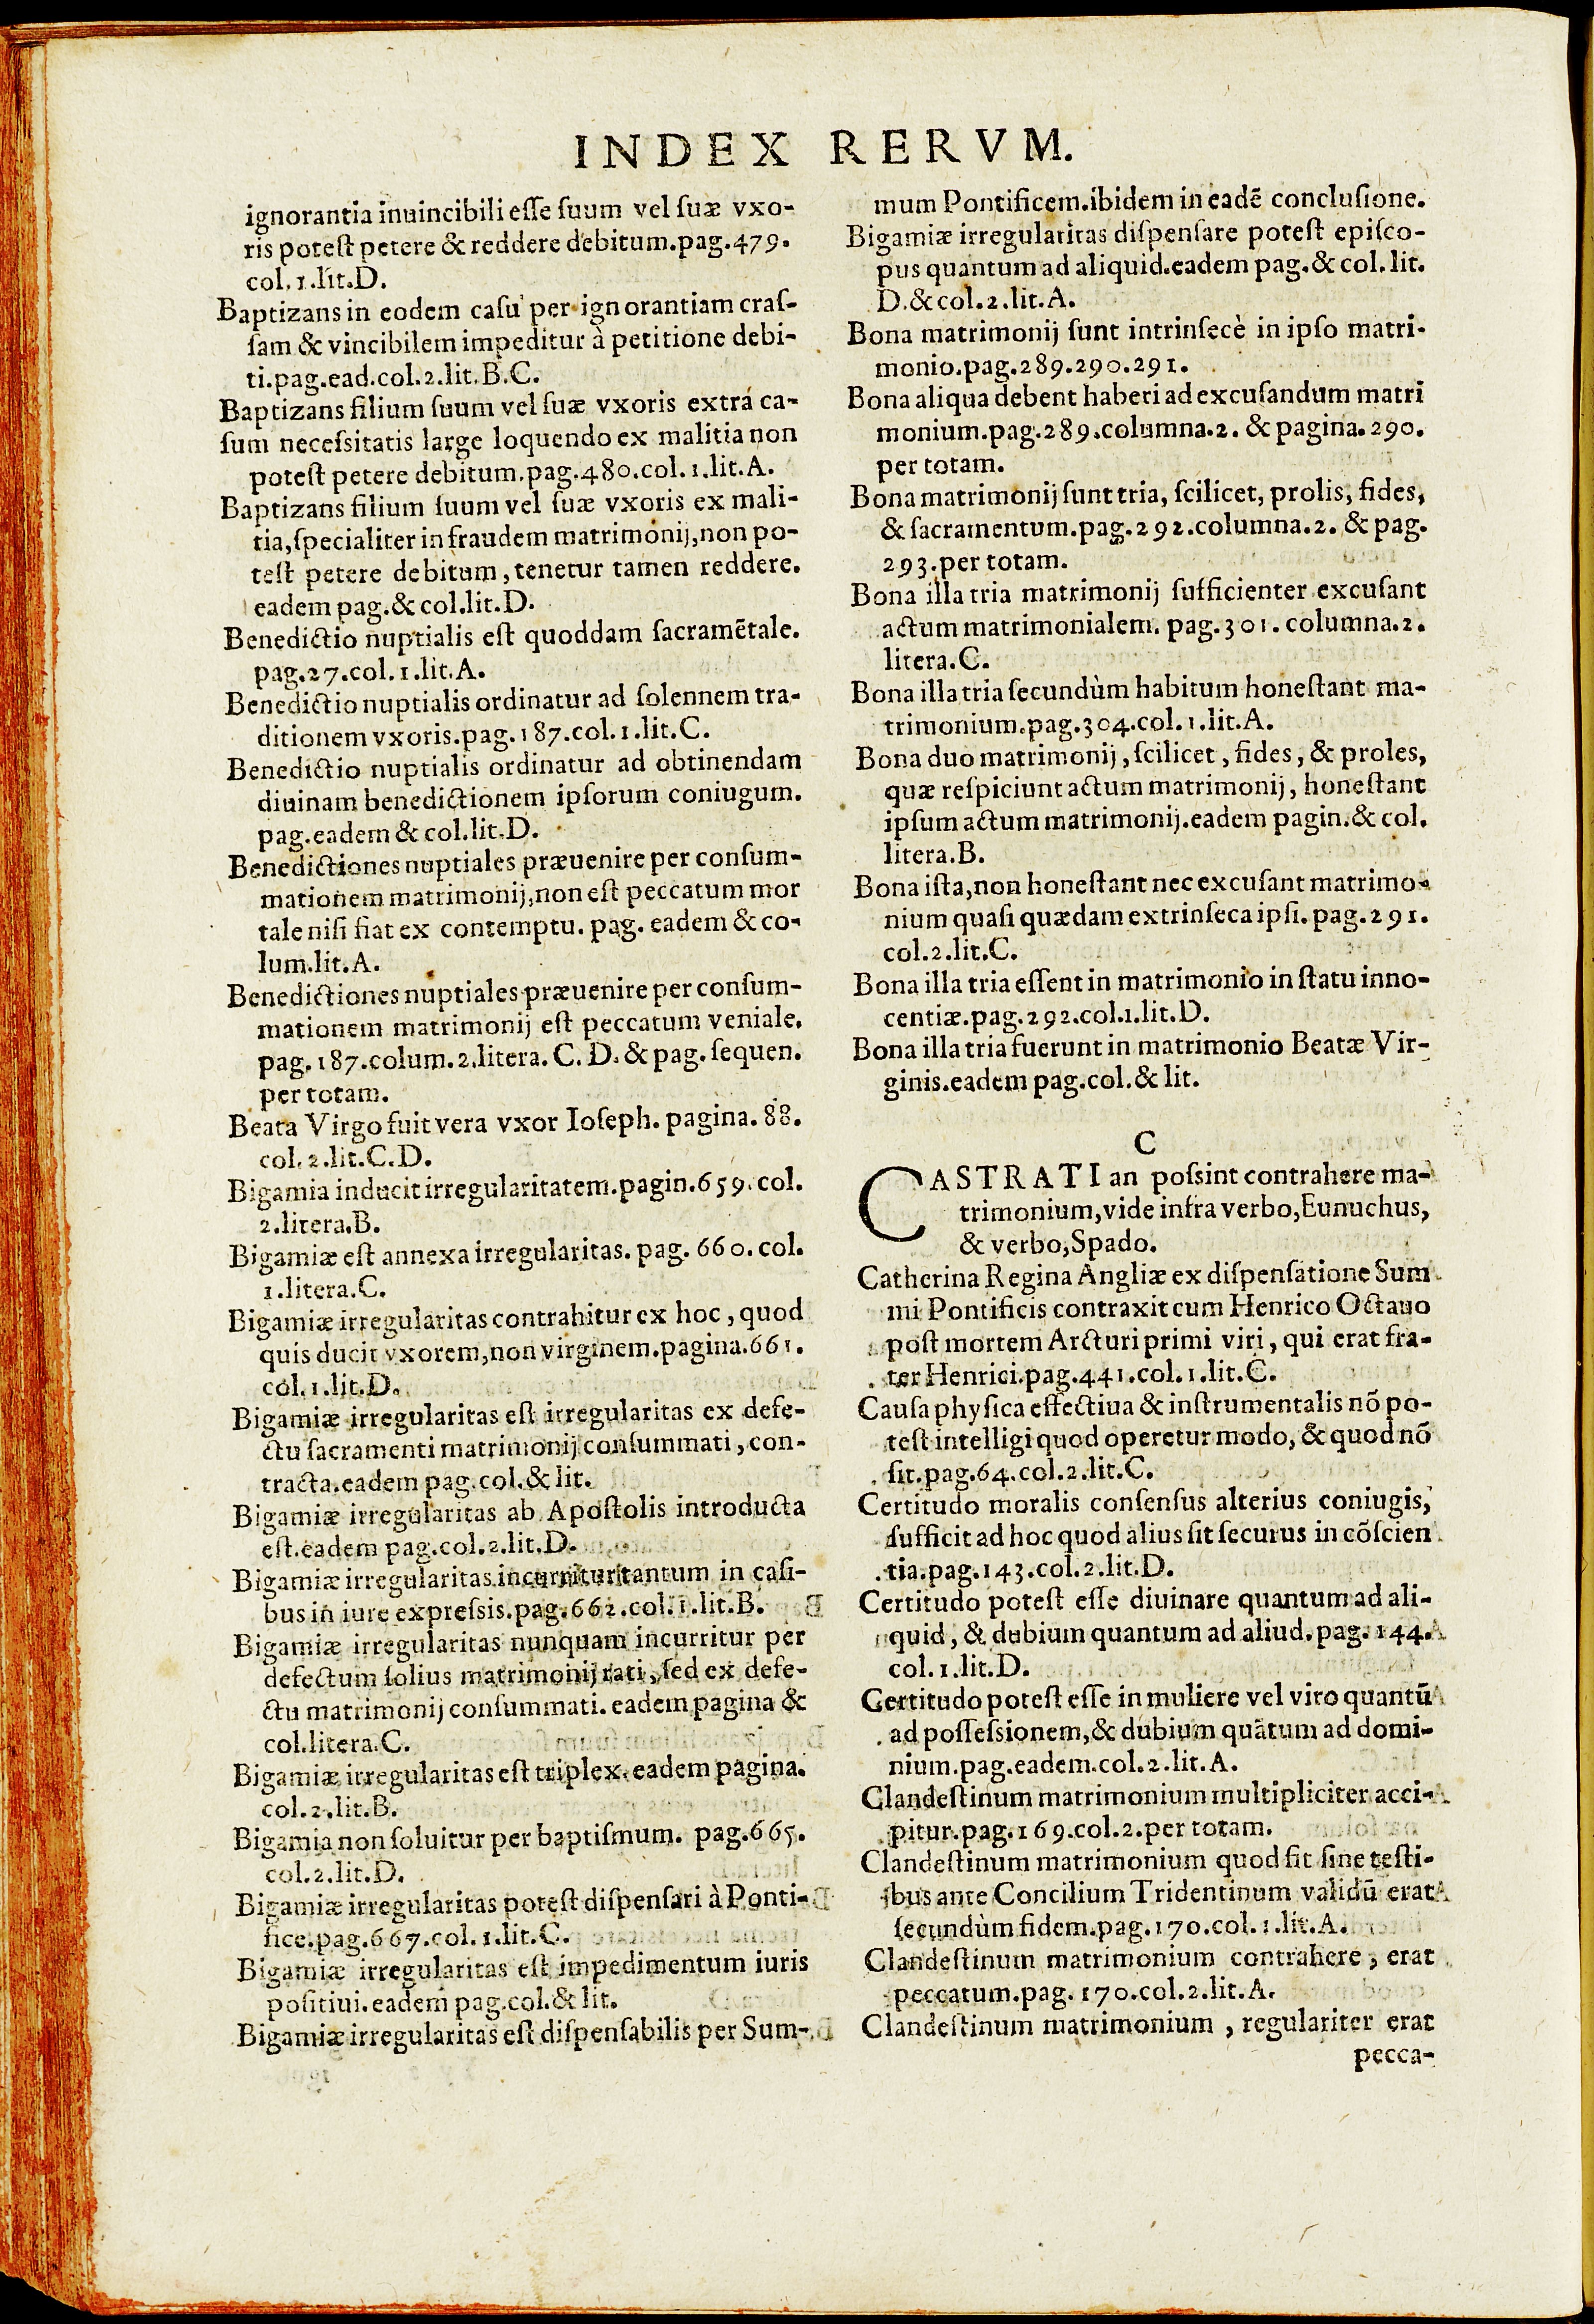 INDEX RERVM.
ignorantia inuincibili eſſe ſuum vel ſuæ vxo-
ris poteſt petere & reddere debitum.pag.479.
col.1.lit.D.
Baptizans in eodem caſu per ignorantiam craſ-
ſam & vincibilem impeditur à petitione debi-
ti.pag.ead.col.2.lit.B.C.
Baptizans filium ſuum vel ſuæ vxoris extrá ca-
ſum neceſsitatis large loquendo ex malitia non
poteſt petere debitum.pag.480.col.1.lit.A.
Baptizans filium ſuum vel ſuæ vxoris ex mali-
tia,ſpecialiter in fraudem matrimonij,non po-
teſt petere debitum, tenetur tamen reddere.
eadem pag.& col.lit.D.
Benedictio nuptialis eſt quoddam ſacramētale.
pag.27.col.1.lit.A.
Benedictio nuptialis ordinatur ad ſolennem tra-
ditionem vxoris.pag.187.col.1.lit.C.
Benedictio nuptialis ordinatur ad obtinendam
diuinam benedictionem ipſorum coniugum.
pag.eadem & col.lit.D.
Benedictiones nuptiales præuenire per conſum-
mationem matrimonij,non eſt peccatum mor
tale niſi fiat ex contemptu. pag. eadem & co-
lum.lit.A.
Benedictiones nuptiales præuenire per conſum-
mationem matrimonij eſt peccatum veniale.
pag.187.colum.2.litera. C. D. & pag. ſequen.
per totam.
Beata Virgo fuit vera vxor Ioſeph. pagina. 88.
col.2.lit.C.D.
Bigamia inducit irregularitatem.pagin.659.col.
2.litera.B.
Bigamiæ eſt annexa irregularitas. pag. 660. col.
1.litera.C.
Bigamiæ irregularitas contrahitur ex hoc, quod
quis ducit vxorem,non virginem.pagina.661.
col.1.lit.D.
Bigamiæ irregularitas eſt irregularitas ex defe-
ctu ſacramenti matrimonij conſummati, con-
tracta.eadem pag.col.& lit.
Bigamiæ irregularitas ab Apoſtolis introducta
eſt.eadem pag.col.2.lit.D.
Bigamiæ irregularitas incurritur tantum in caſi-
bus in iure expreſsis.pag.662.col.1.lit.B.
Bigamiæ irregularitas nunquam incurritur per
defectum ſolius matrimonij rati, ſed ex defe-
ctu matrimonij conſummati. eadem pagina &
col.litera.C.
Bigamiæ irregularitas eſt triplex.eadem pagina.
col.2.lit.B.
Bigamia non ſoluitur per baptiſmum. pag.665.
col.2.lit.D.
Bigamiæ irregularitas poteſt diſpenſari à Ponti-
fice.pag.667.col.1.lit.C.
Bigamiæ irregularitas eſt impedimentum iuris
poſitiui.eadem pag.col.& lit.
Bigamiæ irregularitas eſt diſpenſabilis per Sum-
mum Pontificem.ibidem in eadē concluſione.
Bigamiæ irregularitas diſpenſare poteſt epiſco-
pus quantum ad aliquid.eadem pag.& col.lit.
D.& col.2.lit.A.
Bona matrimonij ſunt intrinſecè in ipſo matri-
monio.pag.289.290.291.
Bona aliqua debent haberi ad excuſandum matri
monium.pag.289.columna.2. & pagina.290.
per totam.
Bona matrimonij ſunt tria, ſcilicet, prolis, fides,
& ſacramentum.pag.292.columna.2. & pag.
293.per totam.
Bona illa tria matrimonij ſufficienter excuſant
actum matrimonialem. pag.301. columna.2.
litera.C.
Bona illa tria ſecundùm habitum honeſtant ma-
trimonium.pag.304.col.1.lit.A.
Bona duo matrimonij, ſcilicet, fides, & proles,
quæ reſpiciunt actum matrimonij, honeſtant
ipſum actum matrimonij.eadem pagin.& col.
litera.B.
Bona iſta,non honeſtant nec excuſant matrimo-
nium quaſi quædam extrinſeca ipſi. pag.291.
col.2.lit.C.
Bona illa tria eſſent in matrimonio in ſtatu inno-
centiæ.pag.292.col.1.lit.D.
Bona illa tria fuerunt in matrimonio Beatæ Vir-
ginis.eadem pag.col.& lit.
C
CASTRATI an poſsint contrahere ma-
trimonium,vide infra verbo,Eunuchus,
& verbo,Spado.
Catherina Regina Angliæ ex diſpenſatione Sum
mi Pontificis contraxit cum Henrico Octauo
poſt mortem Arcturi primi viri, qui erat fra-
ter Henrici.pag.441.col.1.lit.C.
Cauſa phyſica effectiua & inſtrumentalis nō po-
teſt intelligi quod operetur modo, & quod nō
ſit.pag.64.col.2.lit.C.
Certitudo moralis conſenſus alterius coniugis,
ſufficit ad hoc quod alius ſit ſecurus in cōſcien
tia.pag.143.col.2.lit.D.
Certitudo poteſt eſſe diuinare quantum ad ali-
quid, & dubium quantum ad aliud. pag. 144.
col.1.lit.D.
Certitudo poteſt eſſe in muliere vel viro quantū
ad poſſeſsionem,& dubium quātum ad domi-
nium.pag.eadem.col.2.lit.A.
Clandeſtinum matrimonium multipliciter acci-
pitur.pag.169.col.2.per totam.
Clandeſtinum matrimonium quod fit ſine teſti-
bus ante Concilium Tridentinum validū erat
ſecundùm fidem.pag.170.col.1.lit.A.
Clandeſtinum matrimonium contrahere, erat
peccatum.pag.170.col.2.lit.A.
Clandeſtinum matrimonium, regulariter erat
pecca-